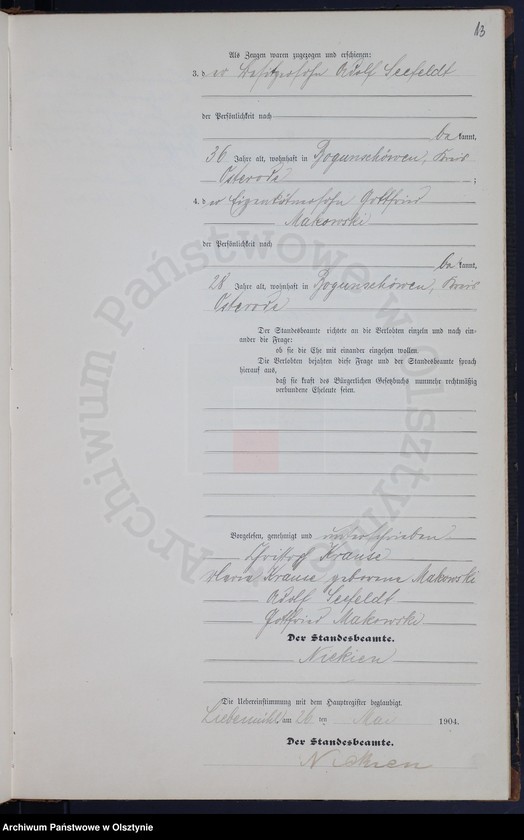 13
Als Zeugen waren zugezogen und erschienen:
3. der Besitzersohn Adolf Seefeldt
der Persönlichkeit nach
bekannt,
36 Jahre alt, wohnhaft in Bogunschöwen, Kreis
Osterode ;
4. der Eigenkätnersohn Gottfried
Makowski
der Persönlichkeit nach
bekannt,
28 Jahre alt, wohnhaft in Bogunschöwen, Kreis
Osterode
Der Standesbeamte richtete an die Verlobten einzeln und nach ein-
ander die Frage:
ob sie die Ehe mit einander eingehen wollen.
Die Verlobten bejahten diese Frage und der Standesbeamte sprach
hierauf aus,
daß sie kraft des Bürgerlichen Gesetzbuchs nunmehr rechtmäßig
verbundene Eheleute seien.
Vorgelesen, genehmigt und unterschrieben
Krause
Maria Krause geborene Makowski
Adolf Seefeldt
Gottfried Makowski
Der Standesbeamte.
Niekien
Die Uebereinstimmung mit dem Hauptregister beglaubigt.
Liebemühl am 26 ten Mai 1904.
Der Standesbeamte.
Niekien
Archiwum Państwowe w Olsztynie
Archiwum Państwowe w Olsztynie